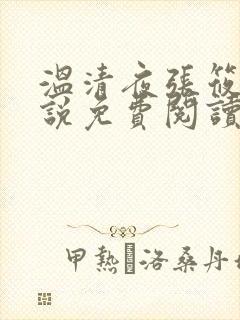 溫清夜張筱
說免費閱讀
甲熱 洛桑丹